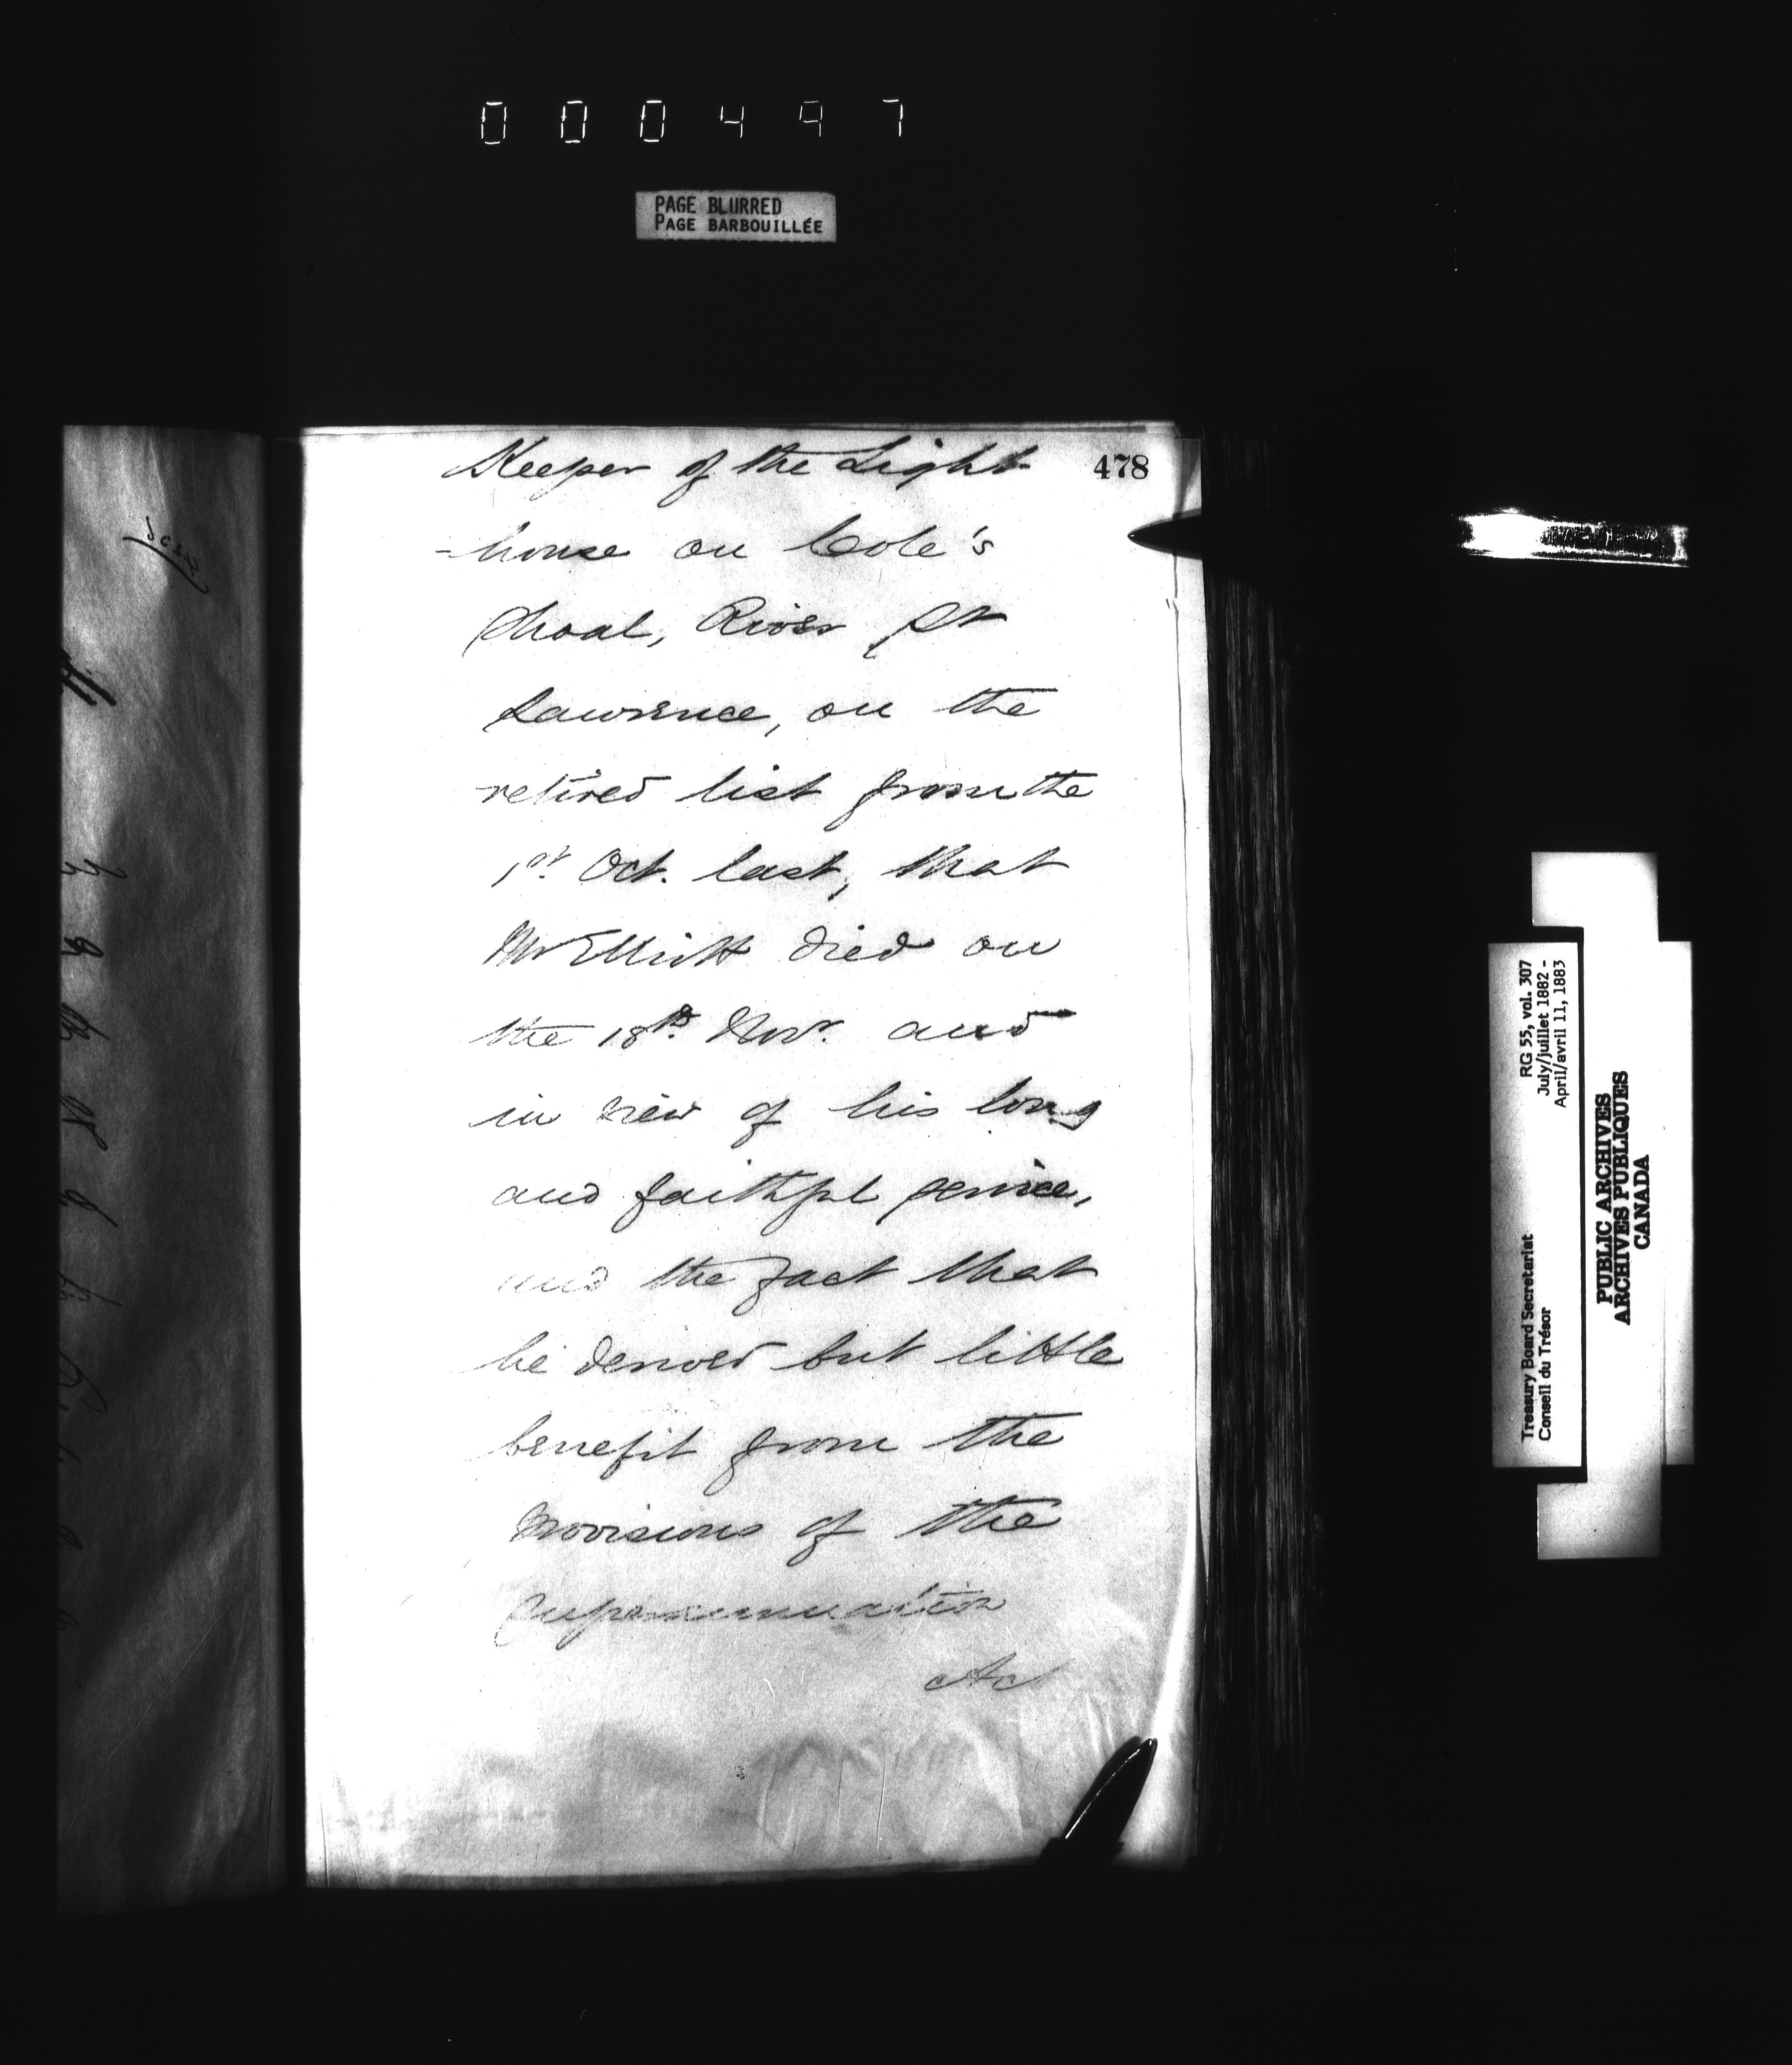 000497
PAGE BLURRED
PAGE BARBOUILLÉE
478
Keeper of the Light
-house on Cole's
Shoal, River St
Lawrence, on the
retired list from the
1st. Oct. last, that
Mr Elliott died on
the 18th Novr. and
in view of his long
and faithful service,
and the fact that
he derived but little
benefit from the
provisions of the
Superannuation
Act
RG 55, vol. 307
July/juillet 1882 -
April/avril 11, 1883
Treasury Board Secretariat
Conseil du Trésor
PUBLIC ARCHIVES
ARCHIVES PUBLIQUES
CANADA